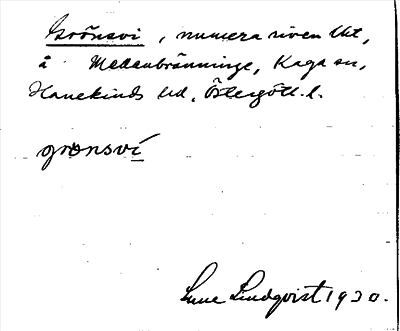 Grönsvi, numera riven lht,
å Medenbränninge, Kaga sn,
Hanekinds hd, Östergötl. l.
gronsví
Sune Lindqvist 1930.